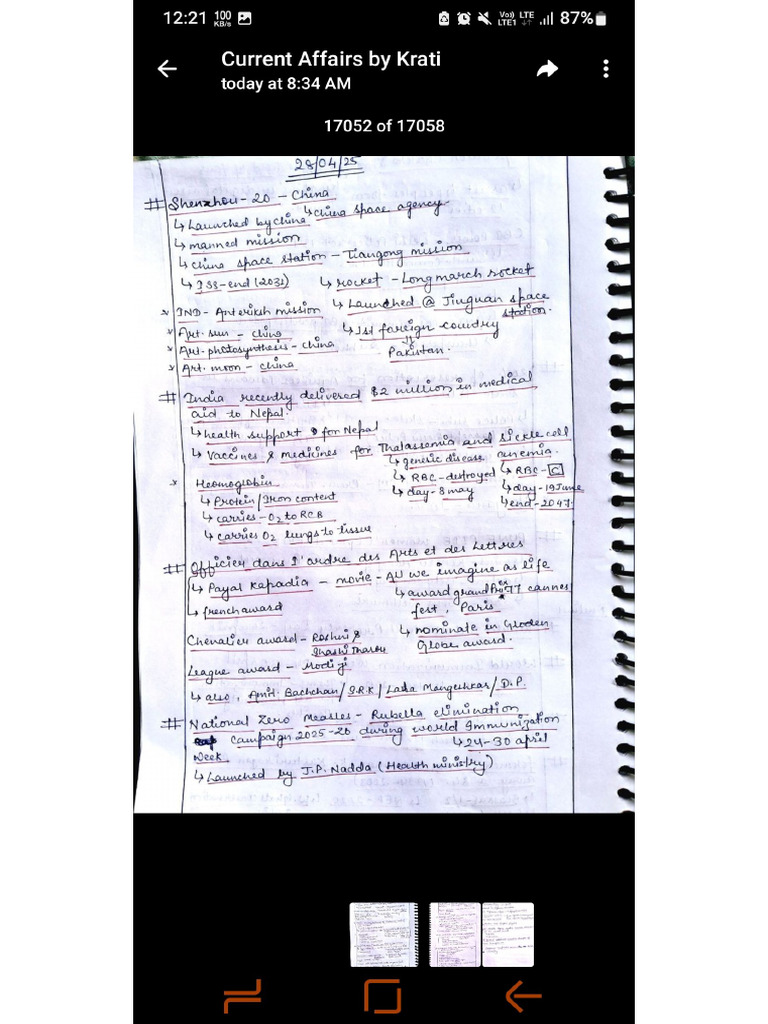 12:21 100 KB/s Vo) LTE LTE1 87%
Current Affairs by Krati
today at 8:34 AM
17052 of 17058
28/04/25
# Shenzhou-20 - China
↳ Launched by china ↳ china space agency
↳ manned mission
↳ china space station - Tiangong mission
↳ ISS-end (2031) ↳ rocket - Longmarch rocket
x IND- Anteriksh mission ↳ Launched @ Jiuguan space station.
x Art. sun - china ↳ 1st foreign country
x Art. photosynthesis - china Pakistan.
x Art. moon - china
# India recently delivered $2 million in medical
aid to Nepal.
↳ health support for Nepal
↳ vaccines & medicines for Thalassemia and sickle cell
↳ genetic disease anemia.
x Heomoglobin ↳ RBC - destroyed ↳ RBC - C
↳ Protein/Iron content ↳ day - 8 may ↳ day - 19 June
↳ carries - O2 to RCB ↳ end - 2047.
↳ carries O2 lungs to tissue
# Officier dans l'ordre des Arts et des Lettres
↳ Payal Kapadia - movie - All we imagine as life
↳ french award ↳ award grand Prix 77 cannes
fest, Paris
Chevalier award - Roshni & Shashi Tharur ↳ nominate in Gloden
Globe award.
League award - Modi ji
↳ also, Amit. Bachchan / S.R.K / Latta Mangeshkar / D.P.
# National Zero Measles - Rubella elimination
campaign 2025-26 during world Immunization
Week ↳ 24-30 april
↳ Launched by J.P. Nadda (Health ministry)